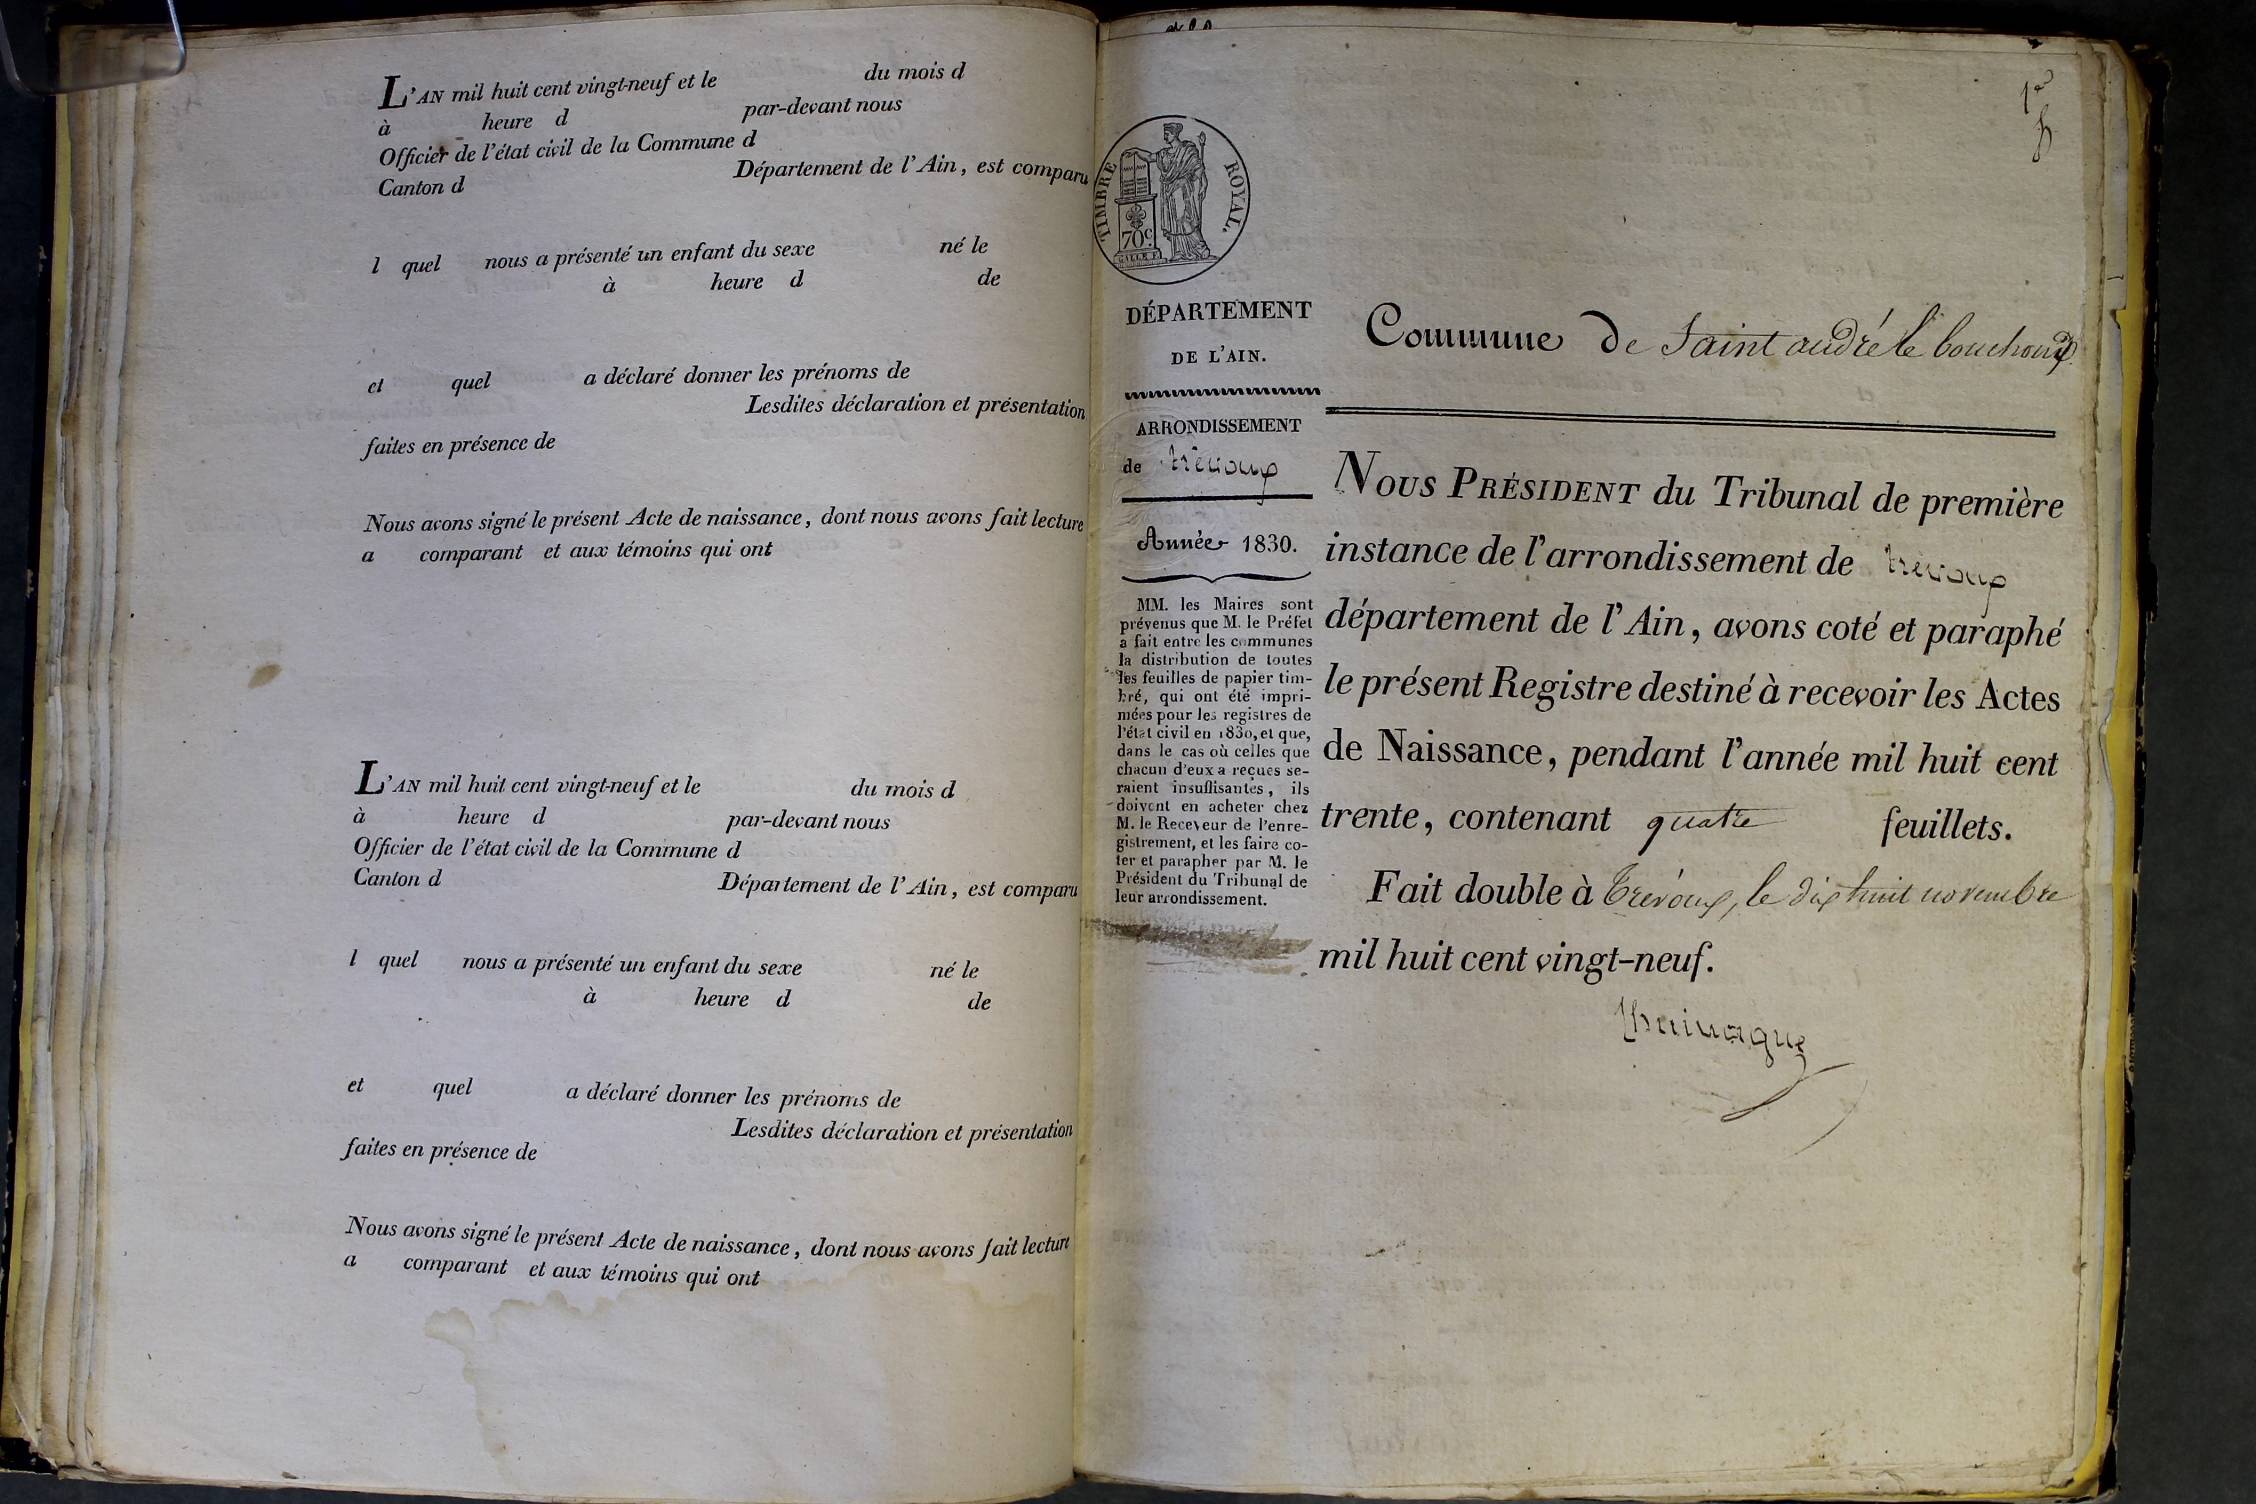 L'AN mil huit cent vingt-neuf et le du mois d
à heure d par-devant nous
Officier de l'état civil de la Commune d
Canton d Département de l'Ain, est comparu
l quel nous a présenté un enfant du sexe né le
à heure d de
et quel a déclaré donner les prénoms de
Lesdites déclaration et présentation
faites en présence de
Nous avons signé le présent Acte de naissance, dont nous avons fait lecture
a comparant et aux témoins qui ont
L'AN mil huit cent vingt-neuf et le du mois d
à heure d par-devant nous
Officier de l'état civil de la Commune d
Canton d Département de l'Ain, est comparu
l quel nous a présenté un enfant du sexe né le
à heure d de
et quel a déclaré donner les prénoms de
Lesdites déclaration et présentation
faites en présence de
Nous avons signé le présent Acte de naissance, dont nous avons fait lecture
a comparant et aux témoins qui ont
1er
TIMBRE ROYAL.
70c
DÉPARTEMENT
DE L'AIN.
ARRONDISSEMENT
de trevoux
Année 1830.
MM. les Maires sont
prévenus que M. le Préfet
a fait entre les communes
la distribution de toutes
les feuilles de papier tim-
bré, qui ont été impri-
mées pour les registres de
l'état civil en 1830, et que,
dans le cas où celles que
chacun d'eux a reçues se-
raient insuffisantes, ils
doivent en acheter chez
M. le Receveur de l'enre-
gistrement, et les faire co-
ter et parapher par M. le
Président du Tribunal de
leur arrondissement.
Commune de Saint andré le bouchoux
NOUS PRÉSIDENT du Tribunal de première
instance de l'arrondissement de trevoux
département de l'Ain, avons coté et paraphé
le présent Registre destiné à recevoir les Actes
de Naissance, pendant l'année mil huit cent
trente, contenant quatre feuillets.
Fait double à Trévoux, le dix huit novembre
mil huit cent vingt-neuf.